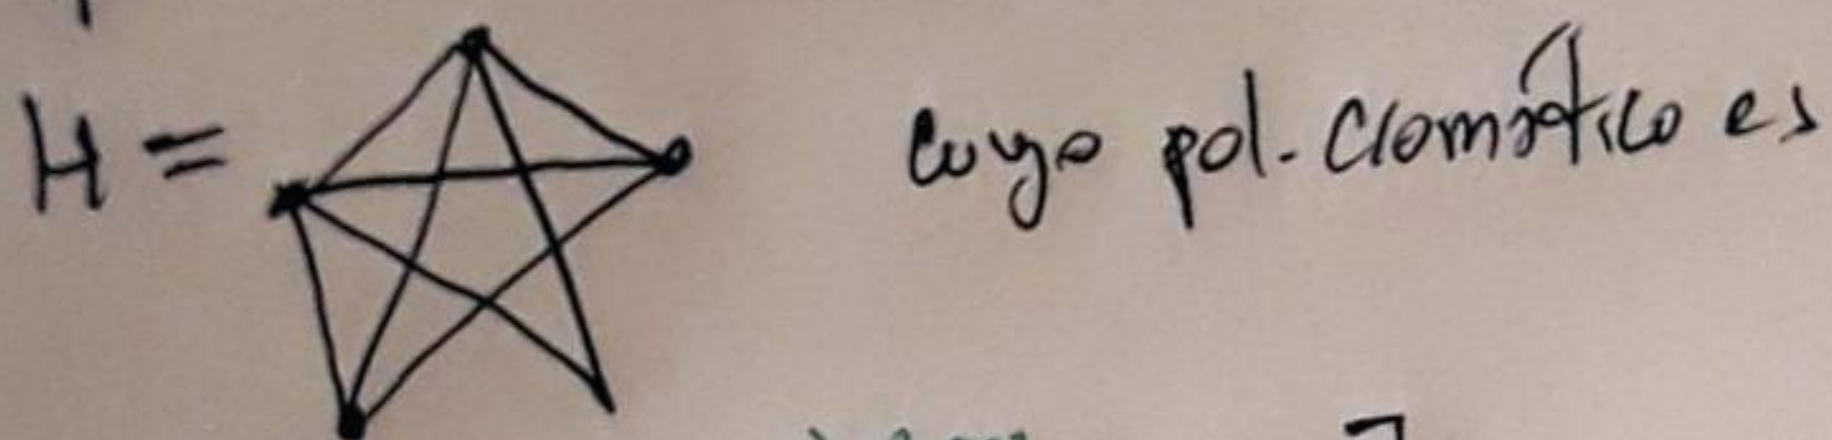 H = cuyo pol. cromático es